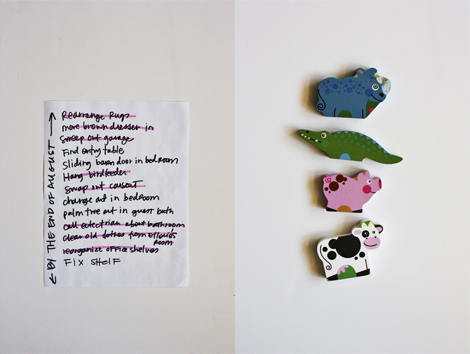 ← BY THE END OF AUGUST →
Rearrange Rugs
move brown dresser in
Sweep out garage
Find entry table
Sliding barn door in bedroom
Hang birdfeeder
Swap out
change art in bedroom
palm tree art in guest bath
call electrician about bathroom
clear old clothes from
room
reorganize office shelves
FIX SHELF